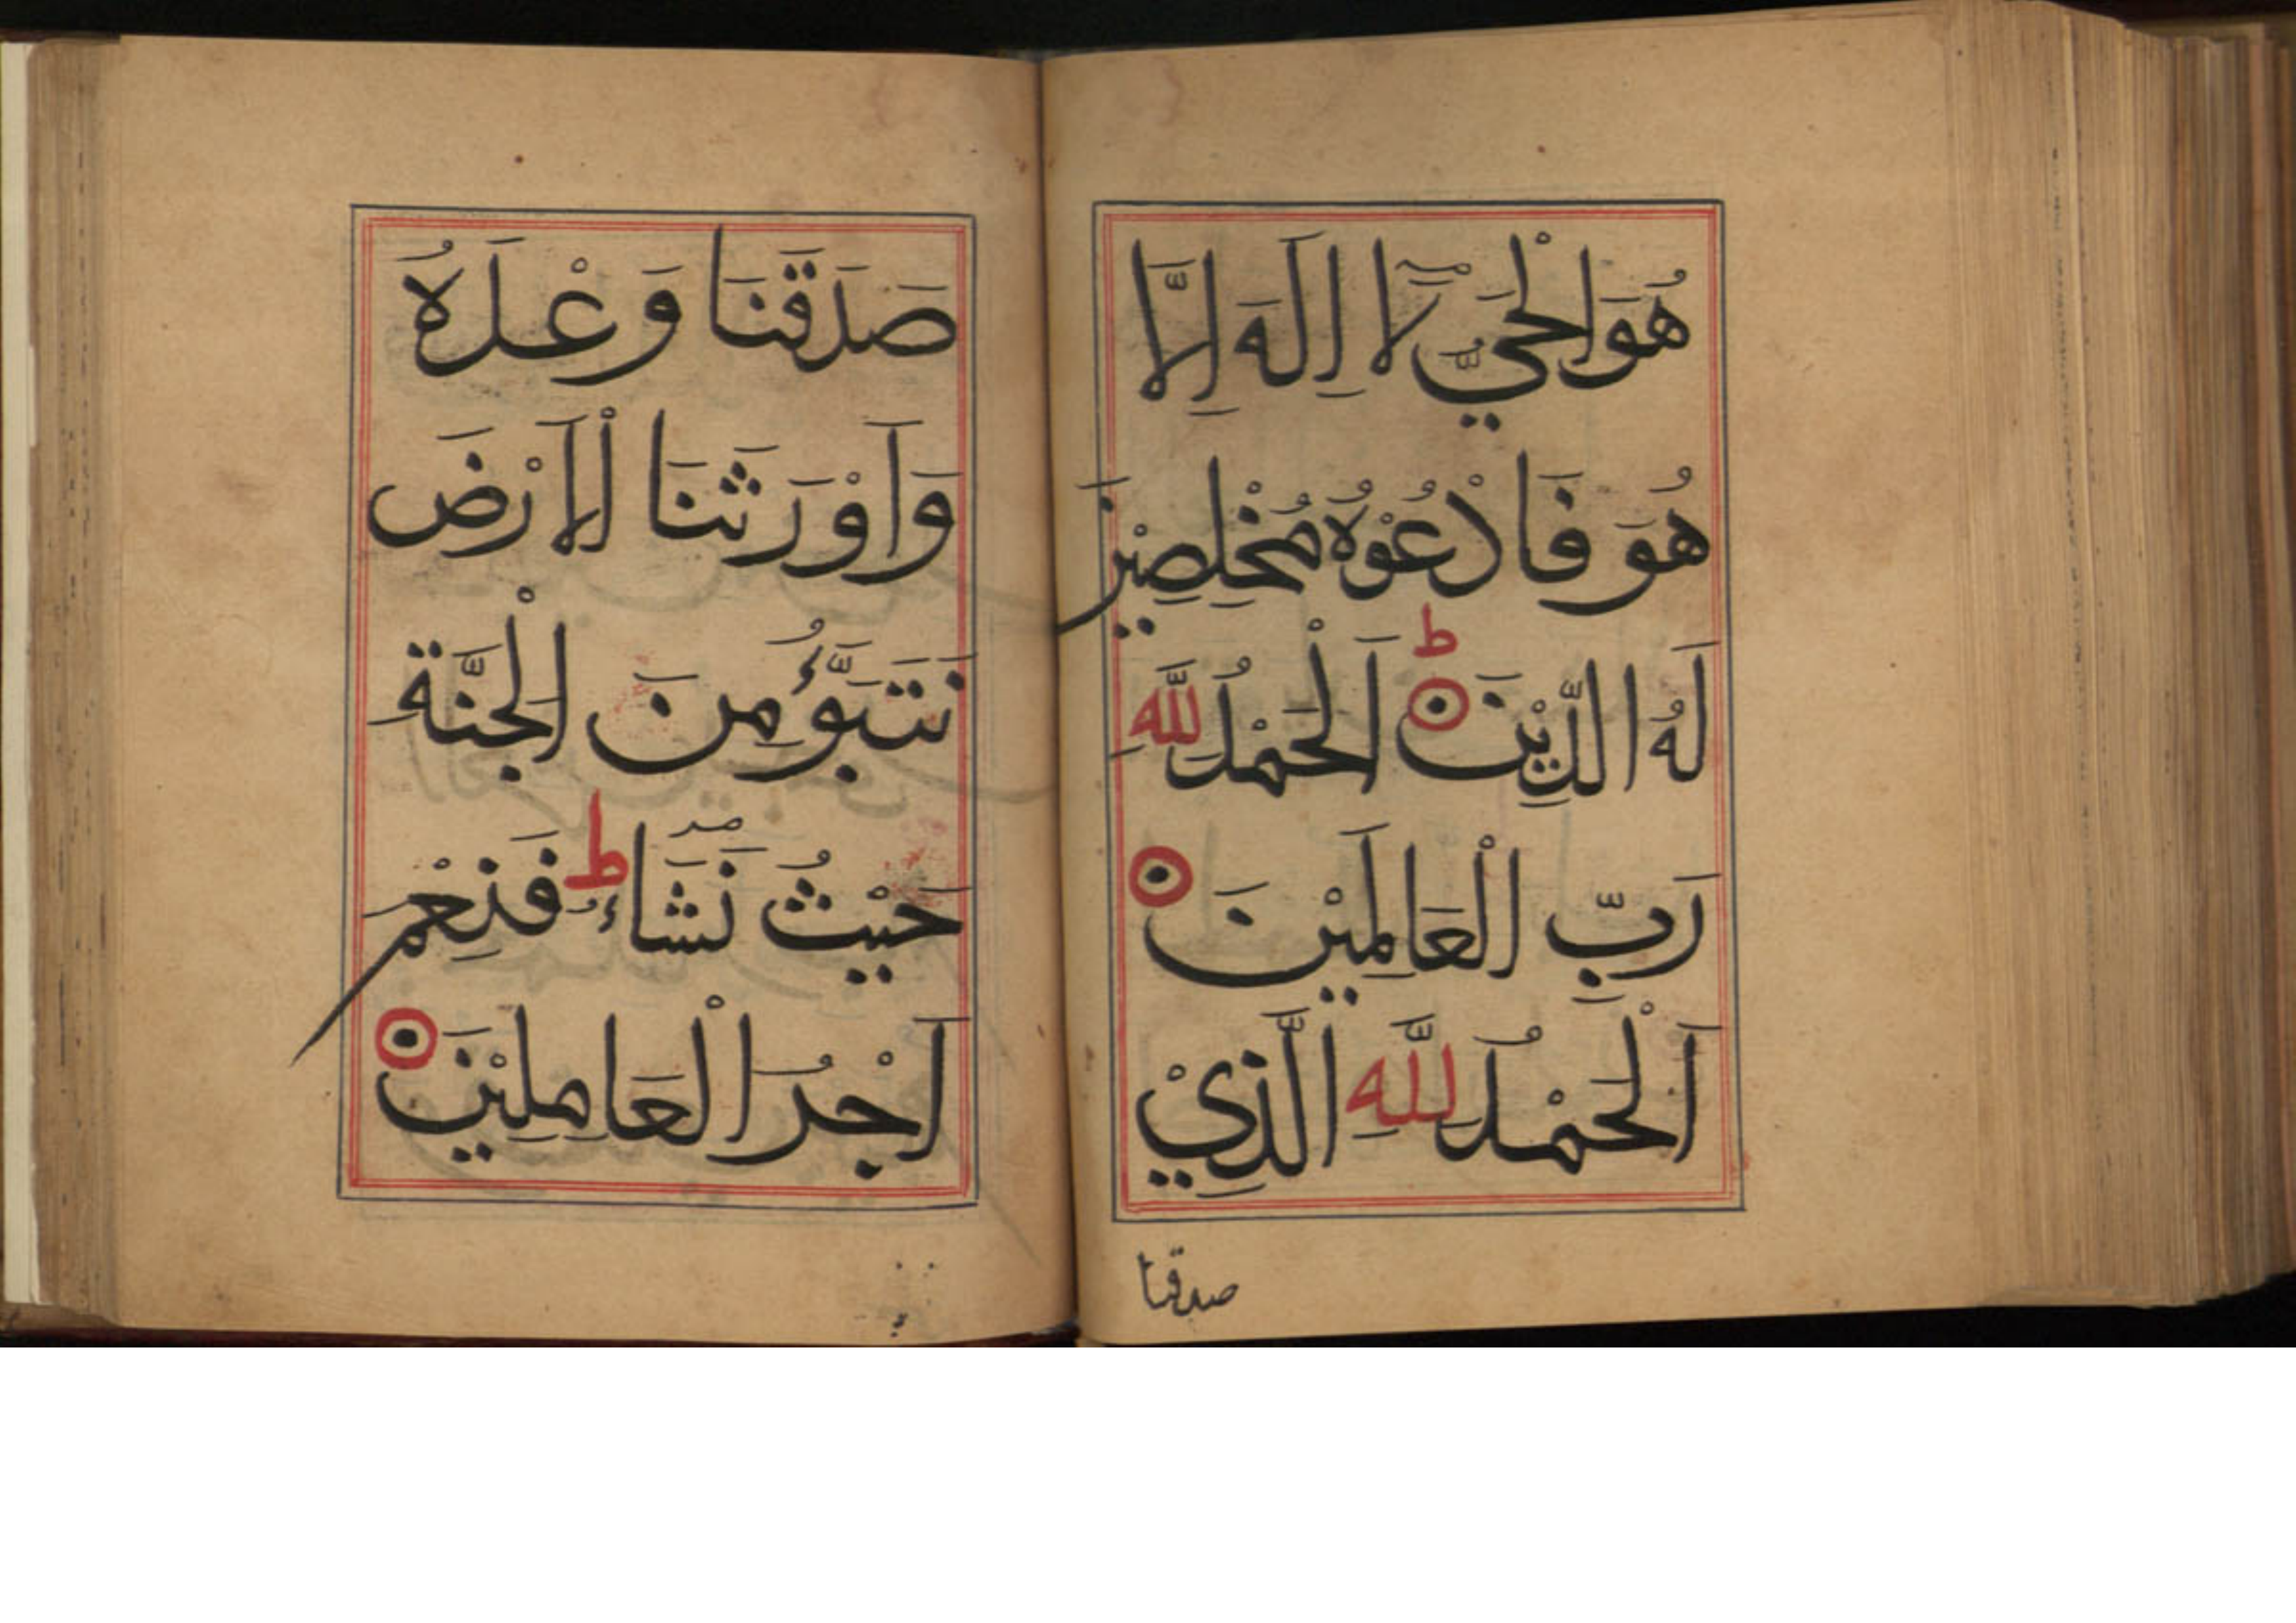 هُوَ الْحَيُّ لَآ اِلَهَ اِلَّا
هُوَ فَادْعُوْهُ مُخْلِصِيْنَ
لَهُ الدِّيْنَ ط اَلْحَمْدُ لِلَّهِ
رَبِّ الْعَالَمِيْنَ
اَلْحَمْدُ لِلَّهِ الَّذِيْ
صدقنا
صَدَقَنَا وَعْدَهُ
وَاَوْرَثَنَا الْاَرْضَ
نَتَبَوَّؤُ مِنَ الْجَنَّةِ
حَيْثُ نَشَاءُ ط فَنِعْمَ
اَجْرُ الْعَامِلِيْنَ